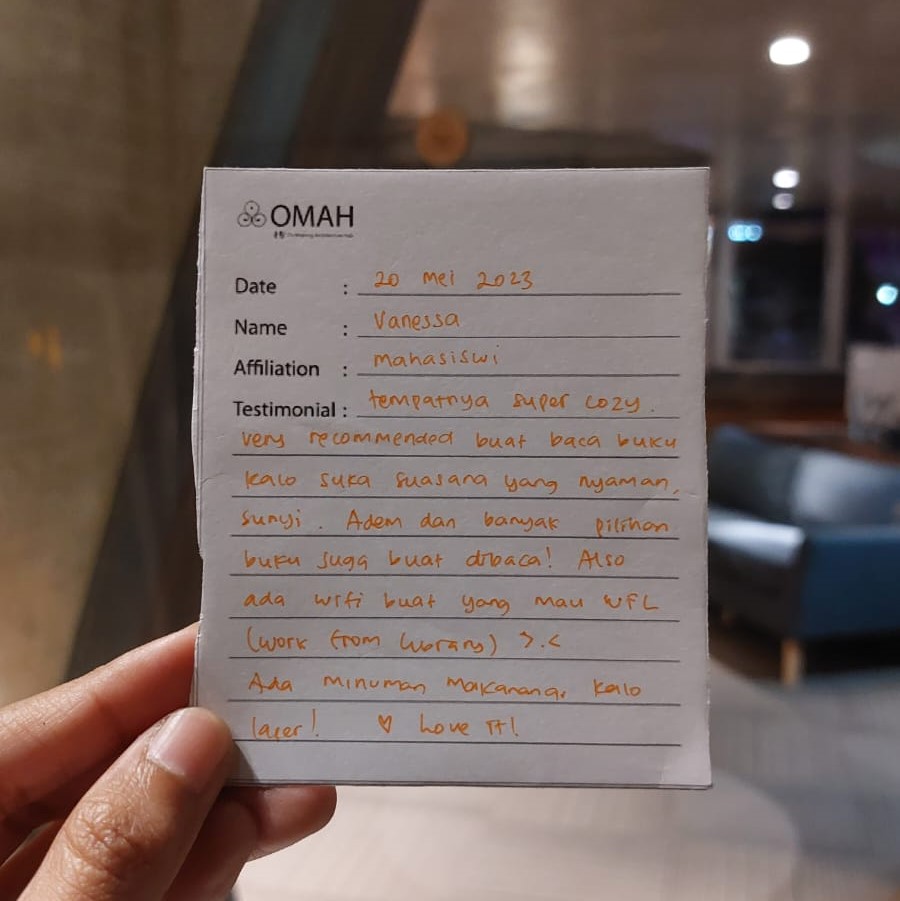 OMAH
Date : 20 Mei 2023
Name : Vanessa
Affiliation : mahasiswi
Testimonial : tempatnya super cozy.
very recommended buat baca buku
kalo suka suasana yang nyaman,
sunyi. Adem dan banyak pilihan
buku juga buat dibaca! Also
ada wifi buat yang mau WFL
(work from library) >.<
Ada minuman makanan kalo
laper! ♡ Love it!